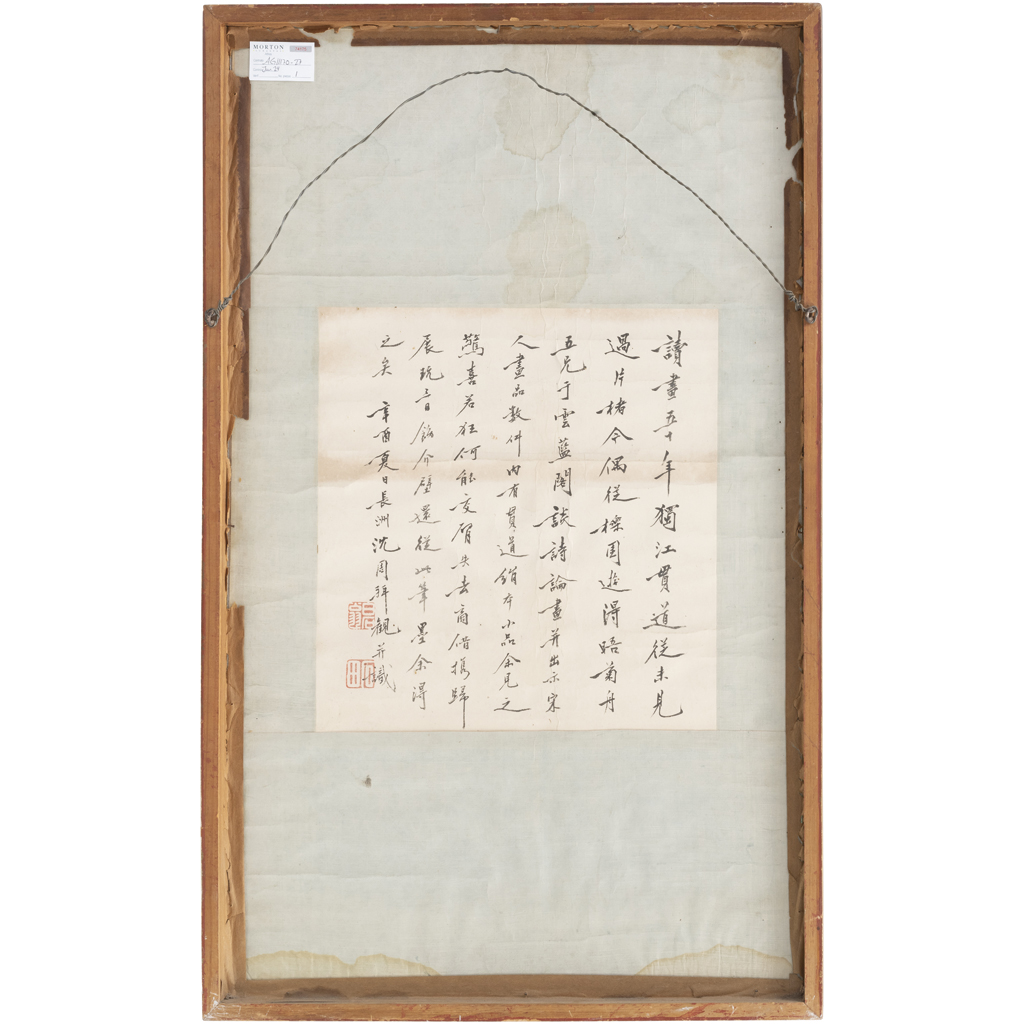 MORTON
讀畫五十年獨江貫道從未見
過片楮今偶從檪園遊得晤菊舟
五兄于雲藍閣談詩論畫并出示宋
人畫品數件內有貫道絹本小品余見之
驚喜若狂何能交臂失去商借携歸
展玩三日餘今璧還從此筆墨余得
之矣 辛酉夏日長洲沈周拜觀并識
石田